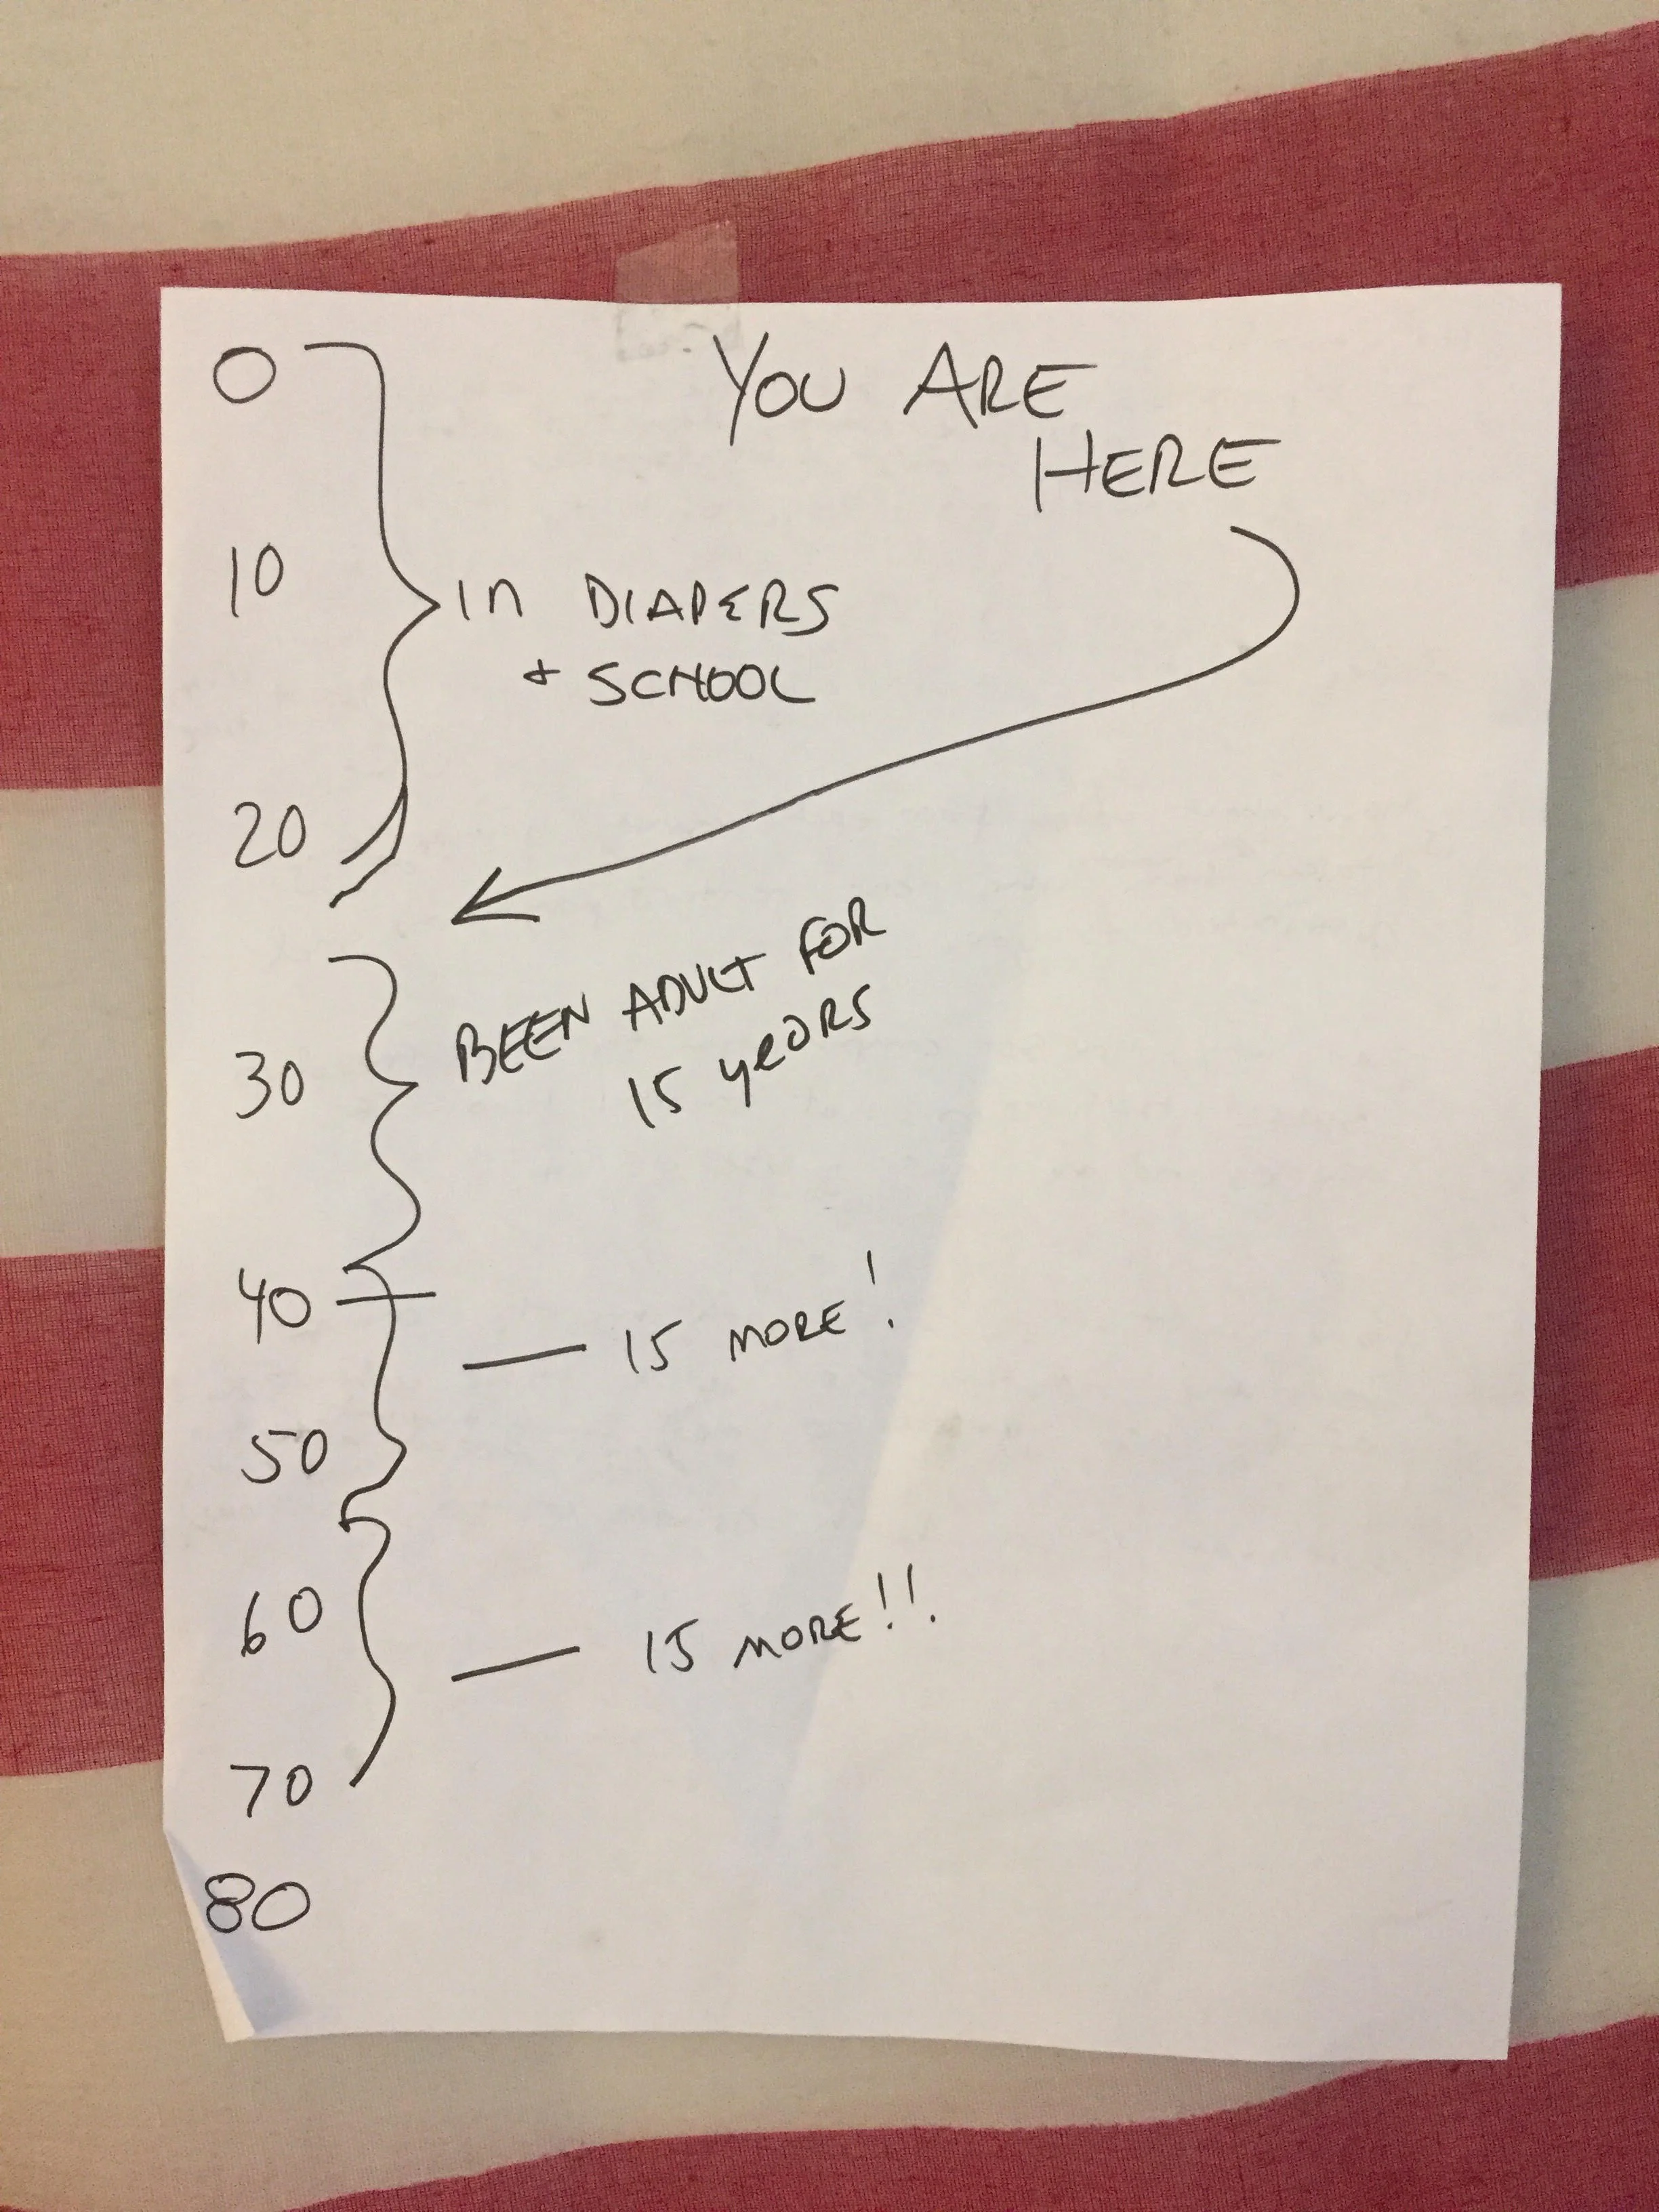 YOU ARE
HERE
0
10
in DIAPERS
+ SCHOOL
20
BEEN ADULT FOR
15 yeaRS
30
40
— 15 MORE!
50
60
— 15 MORE!!
70
80